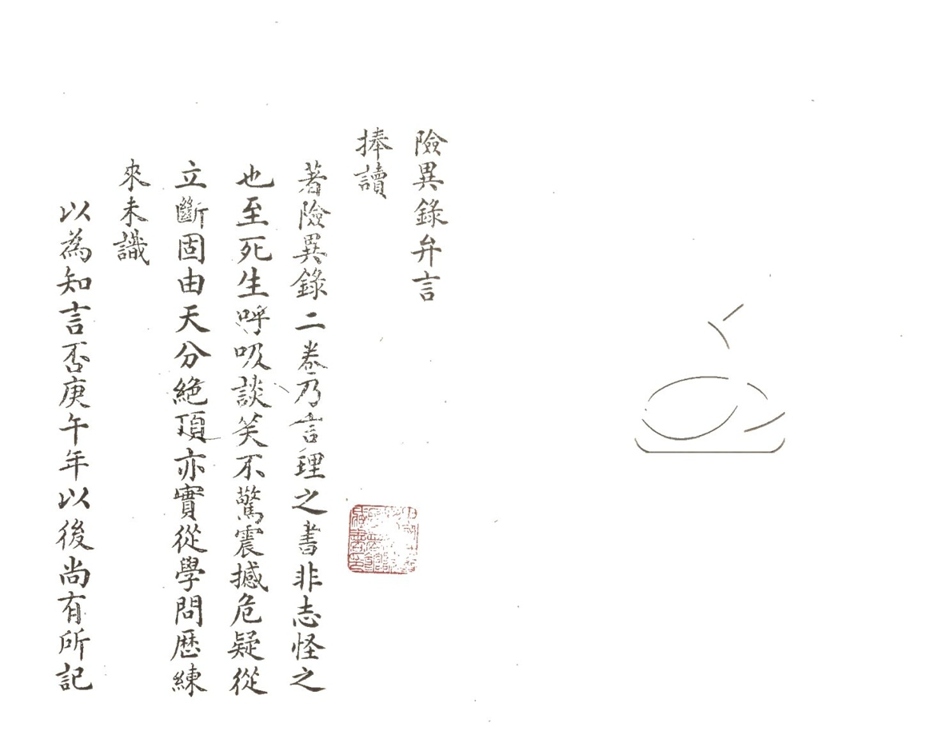 險異錄弁言
捧讀
著險異錄二卷乃言理之書非志怪之
也至死生呼吸談笑不驚震撼危疑從
立斷固由天分絕頂亦實從學問歷練
來未識
以為知言否庚午年以後尚有所記